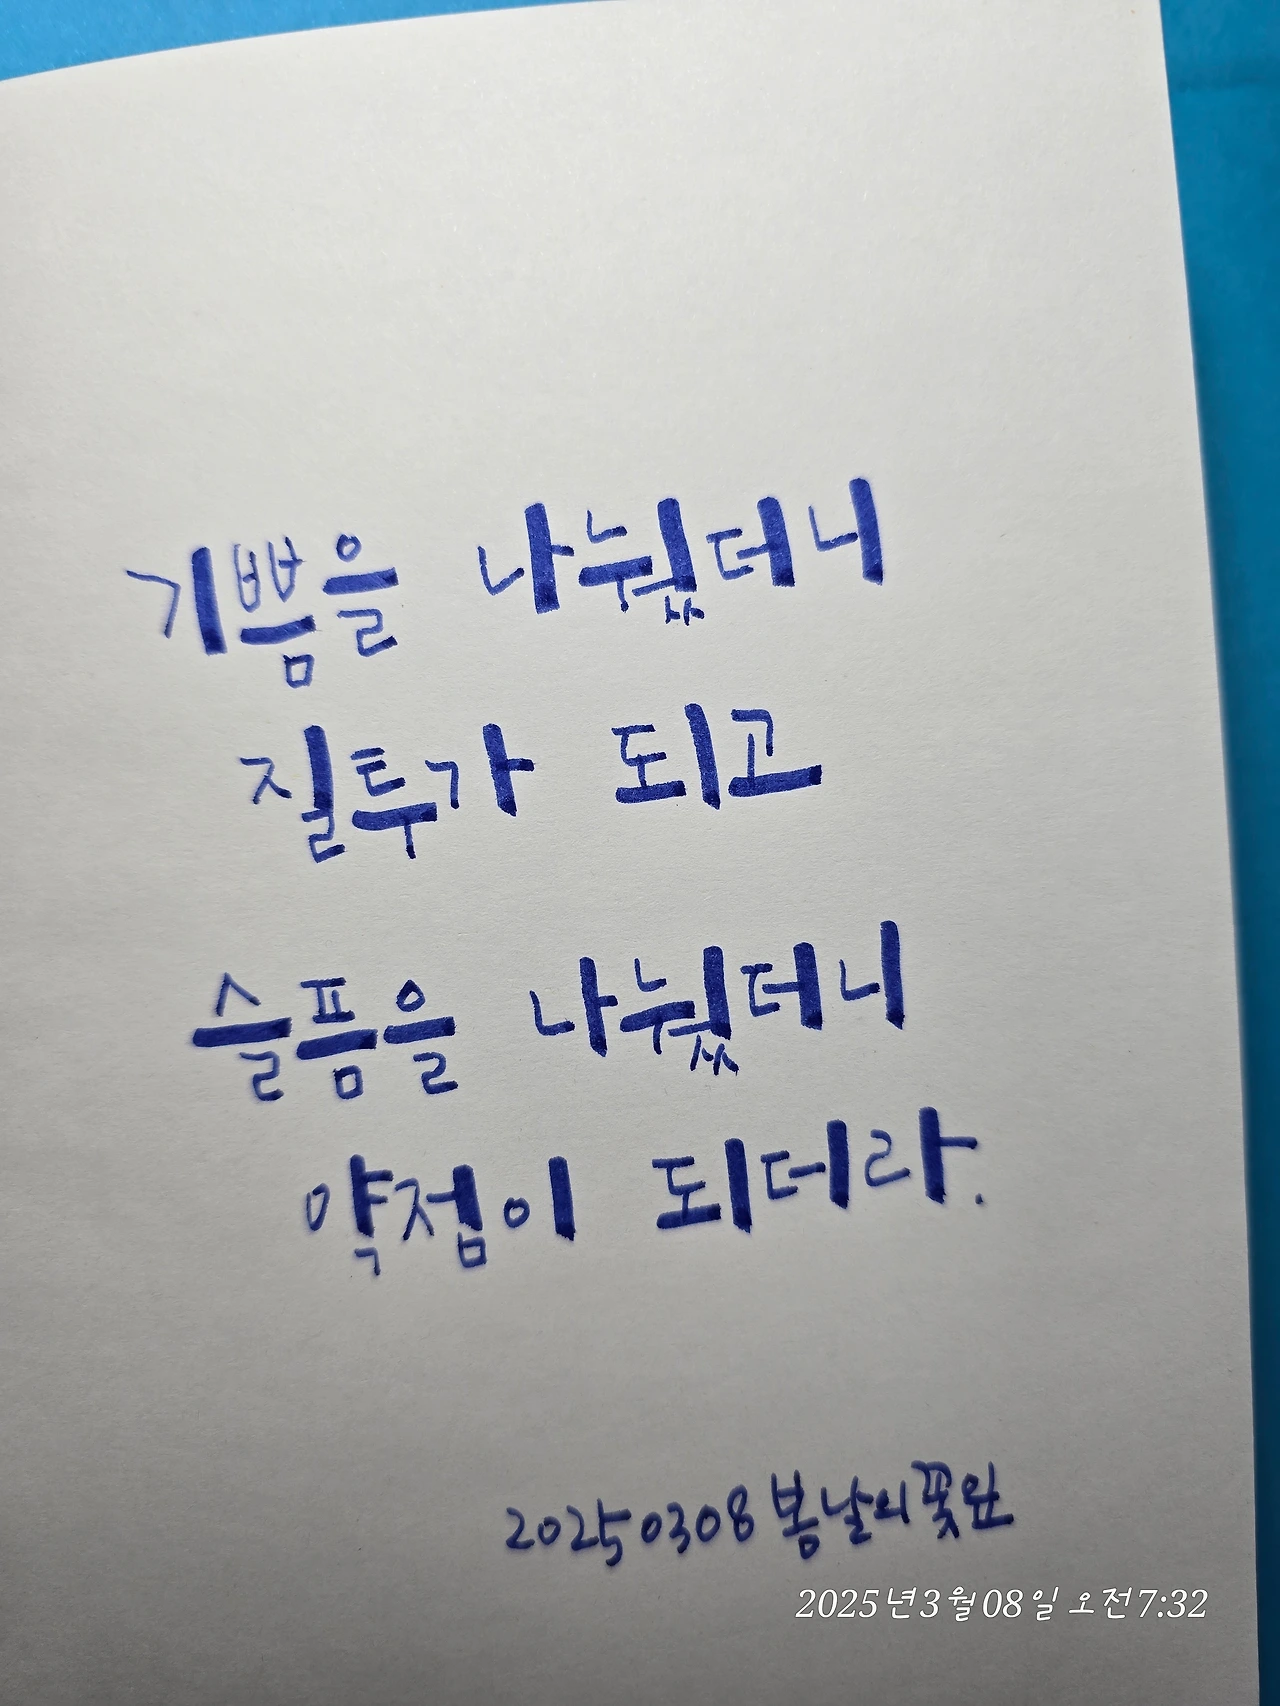 기쁨을 나눴더니
질투가 되고
슬픔을 나눴더니
약점이 되더라.
20250308 봄날의꽃잎
2025년3월08일 오전7:32